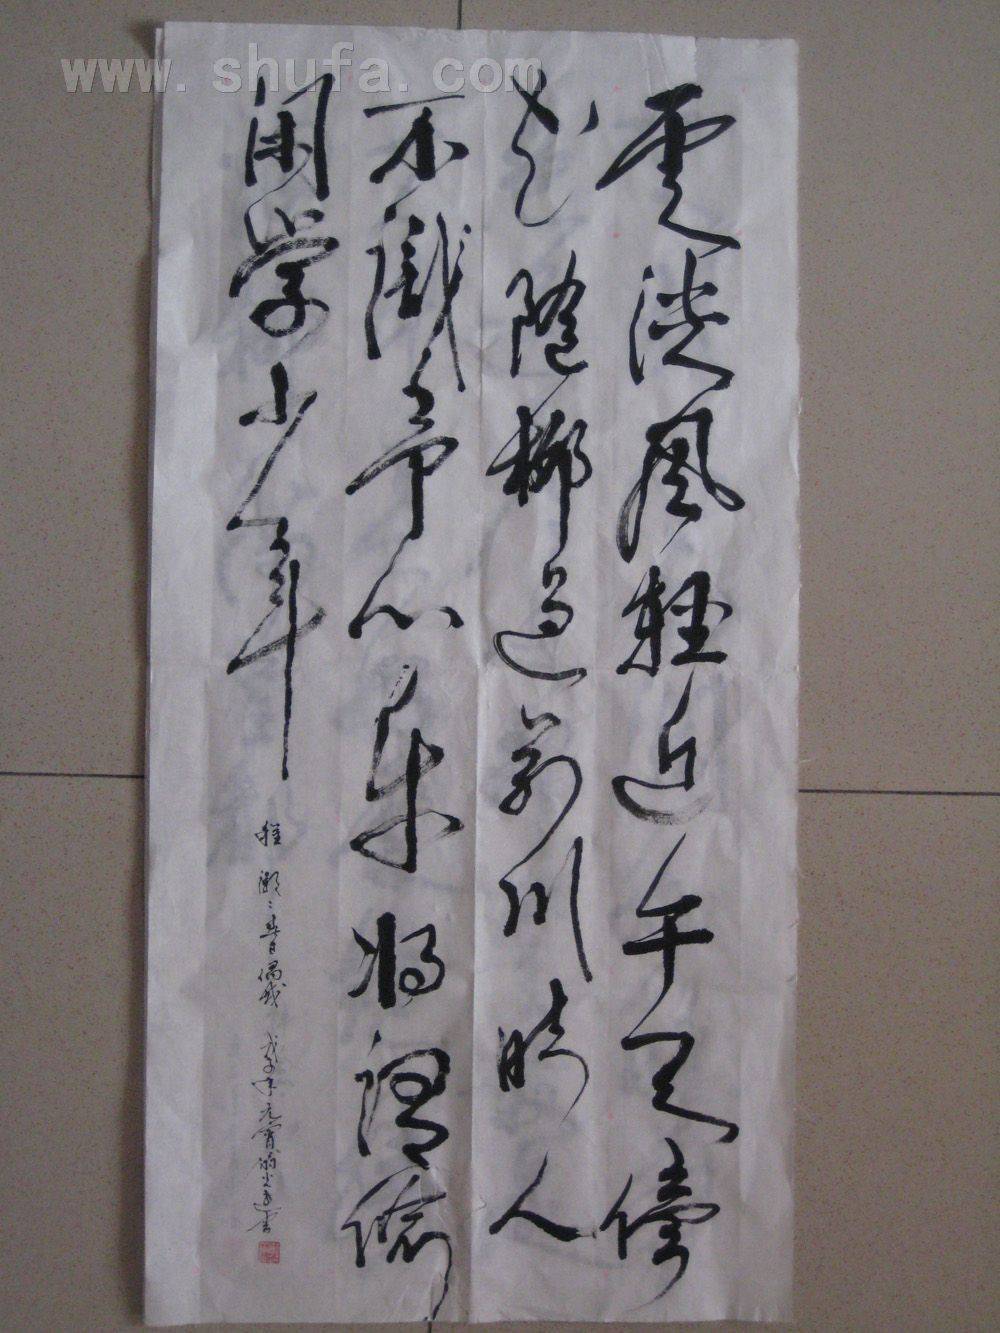 www.shufa.com
雲淡風輕近午天傍
花隨柳過前川時人
不識予心樂將謂偷
閑學少年
程顥之春日偶成 戊子年元宵節